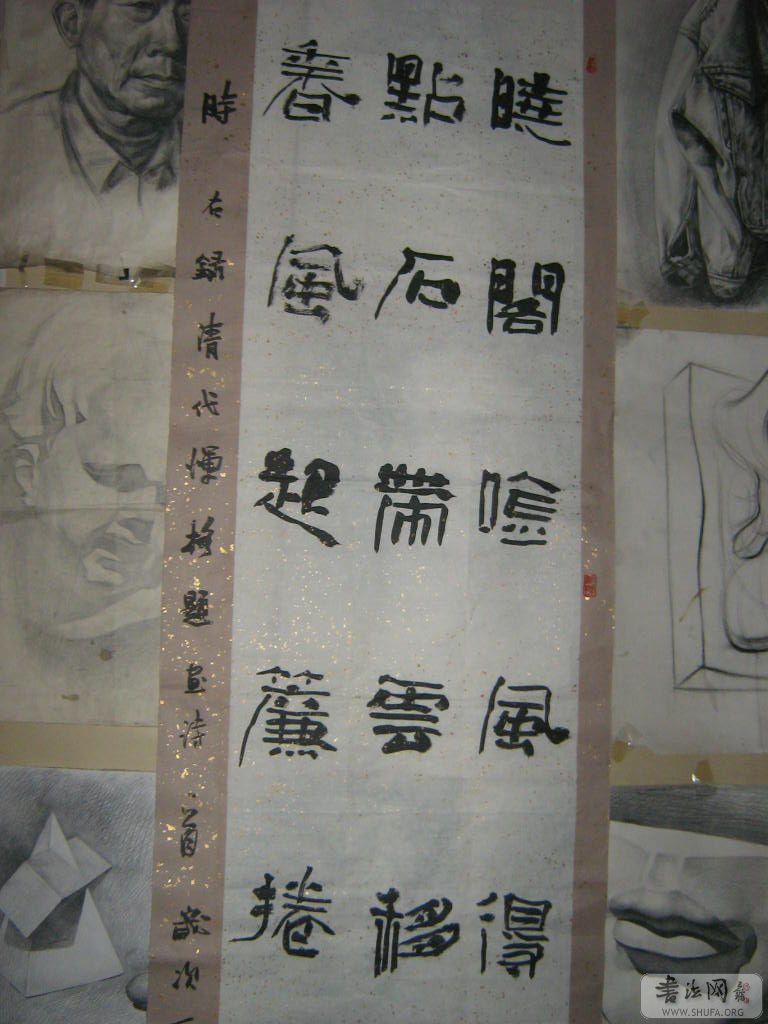 曉閣吟風得
點石帶雲移
香風起簾捲
時 右錄清代惲格題畫詩一首 歲次
书法网
WWW.SHUFA.ORG